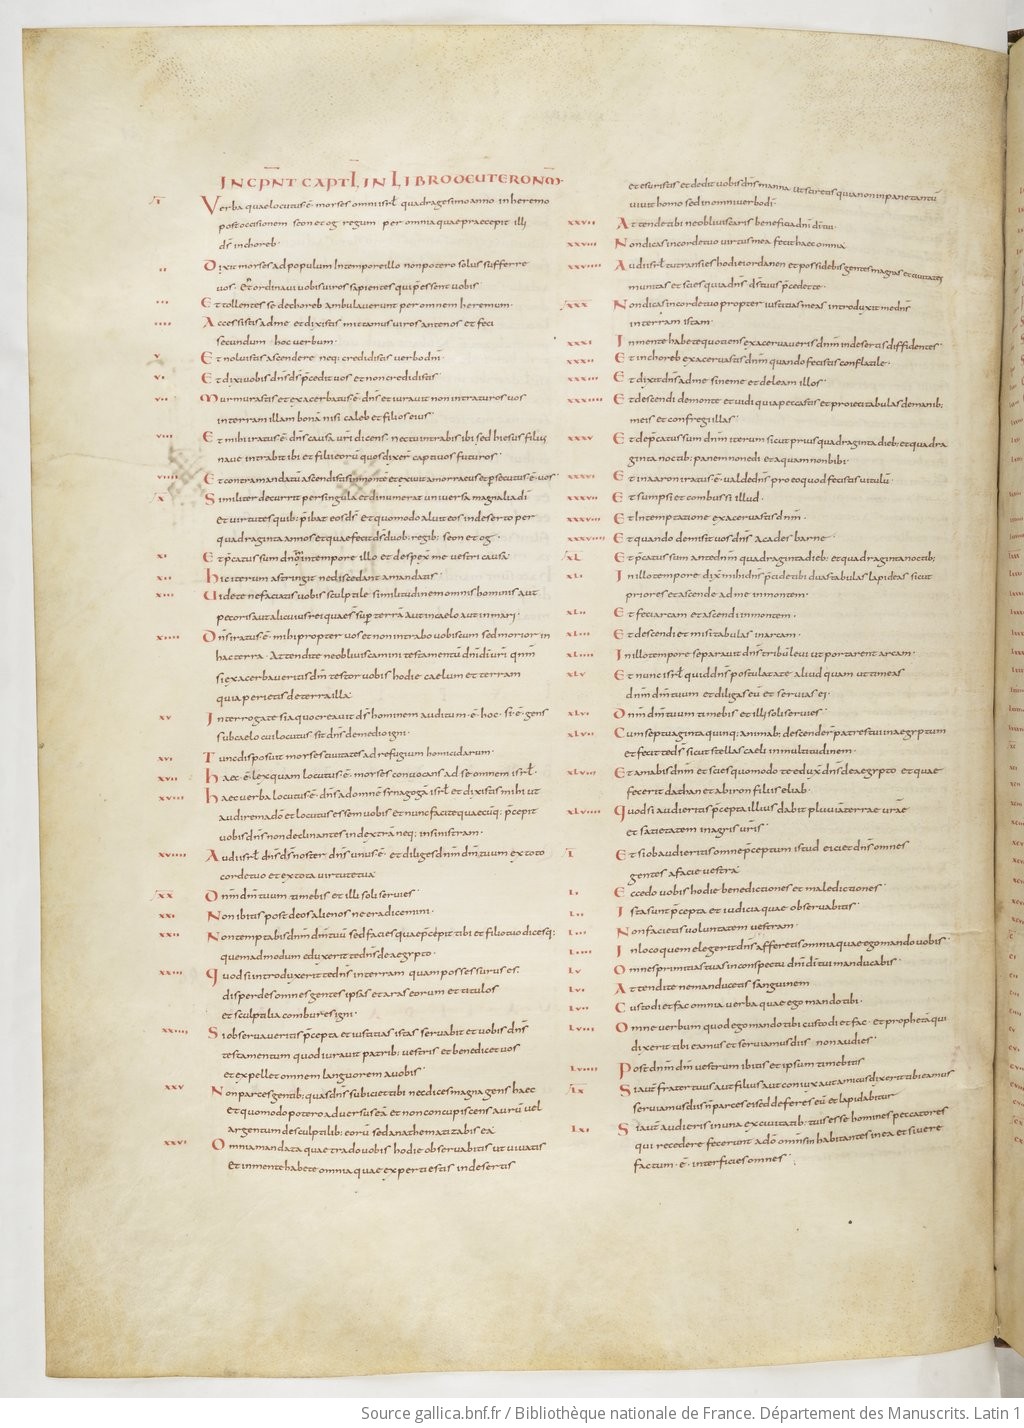 INCPNT CAPTL IN LIBRO DEUTERONM.
I Verba quae locutus ē moyses omni isrl quadragesimo anno in heremo
post occisionem seon et og regum per omnia quae praecepit illi
ds in choreb.
II Dixit moyses ad populum In tempore illo non potero solus sufferre
vos. et ordinavi vobis viros sapientes qui possent vobis
III Et tollentes se de choreb ambulaverunt per omnem heremum.
IIII Accessistis ad me et dixistis mittamus viros ante nos et feci
secundum hoc verbum.
V Et noluistis ascendere neq; credidistis verbo dni.
VI Et dixi vobis dns ds pcedit vos et non credidistis
VII Murmurastis et exacerbatus ē dns et iuravit non intraturos vos
in terram illam bonā nisi caleb et filios eius
VIII Et mihi iratus ē dns causa vri dicens nec tu intrabis ibi sed hiesus filius
nave intrabit ibi et filii eorū quos dixer captivos futuros
VIIII Et contra mandatū ascendistis in monte et exivit amorraeus et psecutus ē vos
X Similiter decurrit per singula et dinumerat universa magnalia di
et virtutes quib; pibat eos ds Et quomodo aluit eos in deserto per
quadraginta annos et quae fecit ds duob; regib; seon et og.
XI Et pcatus sum dno in tempore illo et despex me vestri causa
XII Hic iterum astringit ne discedant a mandatis
XIII Videte ne faciatis vobis sculptile similitudinem omnis hominis aut
pecoris aut alicuius rei quae sup terrā aut in caelo aut in mari.
XIIII Dns iratus ē mihi propter vos et non intrabo vobiscum sed morior in
hac terra. Attendite ne obliviscamini testamentū dni di vri qnm
si exacerbaveritis dnm testor vobis hodie caelum et terram
quia perietis de terra illa
XV Interrogate si a quo creavit ds hominem auditum ē hoc. si ē gens
sub caelo cui locutus sit ds de medio igni.
XVI Tunc disposuit moyses civitates ad refugium homicidarum.
XVII Haec ē lex quam locutus ē moyses convocans ad se omnem isrl.
XVIII Haec verba locutus ē dns ad omnē synagogā isrl et dixistis mihi ut
audirem a dō et locutus essem vobis et nunc facite quaecūq; pcepit
vobis dns non declinantes in dextrā neq; in sinistram.
XVIIII Audi isrl dns ds noster dns unus ē et diliges dnm dm tuum ex toto
corde tuo et ex tota virtute tua
XX Dnm dm tuum timebis et illi soli servies
XXI Non ibitis post deos alienos ne eradicemini.
XXII Non temptabis dnm dm tuū sed facies quae pcepit tibi et filio tuo dices q;
quemadmodum eduxerit te dns de aegypto.
XXIII Quod si introduxerit te dns in terram quam possessurus es.
disperdes omnes gentes ipsas et aras eorum et titulos
et sculptilia combures igni.
XXIIII Si observaveritis pcepta et iustitias istas servabit et vobis dns
testamentum quod iuravit patrib; vestris et benedicet vos
et expellet omnem languorem a vobis
XXV Non parces gentib; quas dns subiciet tibi nec dices magna gens haec
et quomodo potero adversus eā et non concupiscens aurū vel
argentum de sculptilib; eorū sed anathematizabis ea
XXVI Omnia mandata quae trado vobis hodie observabitis ut vivatis
Et in mente habete omnia quae experti estis in desertis
et esuristis et dedit vobis dns manna ut sciretis quia non in pane tantū
vivit homo sed in omni verbo di
XXVII Attende tibi ne obliviscaris beneficia dni di tui.
XXVIII Non dicas in corde tuo virtus mea fecit haec omnia
XXVIIII Audi isrl tu transies hodie iordanen et possidebis gentes magnas et civitates
munitas et scies quia dns ds tuus pcedet te
XXX Non dicas in corde tuo propter iustitias meas introduxit me dns
in terram istam.
XXXI In mente habete quotiens exacervaveris dnm in desertis diffidentes
XXXII Et in choreb exacervastis dnm quando fecistis conflatile.
XXXIII Et dixit dns ad me sine me et deleam illos
XXXIIII Et descendi de monte et vidi quia peccastis et proieci tabulas de manib;
meis et confregi illas
XXXV Et depcatus sum dnm iterum sicut prius quadraginta dieb; et quadra
ginta noctib; panem non edi et aquam non bibi
XXXVI Et in aaron iratus ē valde dns pro eo quod fecistis vitulū
XXXVII Et sumpsi et combussi illud.
XXXVIII Et In temptatione exacervastis dnm.
XXXVIIII Et quando demisit vos dns a cades barne
XL Et pcatus sum ante dnm quadraginta dieb; et quadraginta noctib;
XLI In illo tempore dix mihi dns pcide tibi duas tabulas lapideas sicut
priores et ascende ad me in montem.
XLII Et feci arcam et ascendi in montem.
XLIII Et descendi et misi tabulas in arcam.
XLIIII In illo tempore separavit dns tribū levi ut portarent arcam.
XLV Et nunc isrl quid dns postulat a te aliud quam ut timeas
dnm dm tuum et diligas eū et servias ei.
XLVI Dnm dm tuum timebis et illi soli servies
XLVII Cum septuaginta quinq; animab; descender patres tui in aegyptum
et fecit te ds sicut stellas caeli in multitudinem.
XLVIII Et amabis dnm et scies quomodo te eduxit dns de aegypto et quae
fecerit dathan et abiron filiis eliab.
XLVIIII Quod si audieritis pcepta illius dabit pluviā terrae vrae
et satietatem in agris vris
L Et si obaudieritis omne pceptum istud eiciet dns omnes
gentes a facie vestra
LI Ecce do vobis hodie benedictiones et maledictiones
LII Ista sunt pcepta et iudicia quae observabitis
LIII Non facietis voluntatem vestram.
LIIII In loco quem elegerit dns afferetis omnia quae ego mando vobis
LV Omnes primitias tuas in conspectu dni di tui manducabis
LVI Attendite ne manducetis sanguinem
LVII Custodi et fac omnia verba quae ego mando tibi.
LVIII Omne verbum quod ego mando tibi custodi et fac. et propheta qui
dixerit tibi eamus et serviamus diis non audies
LVIIII Post dnm dm vestrum ibitis et ipsum timebitis
LX Si aut frater tuus aut filius aut coniux aut amicus dixerit tibi eamus
serviamus diis n parces ei sed deferes eū et lapidabitur
LXI Si aut audieris in una ex civitatib; tuis esse homines peccatores
qui recedere fecerunt a dō omnes inhabitantes in ea et si vere
factum ē interficies omnes
Source gallica.bnf.fr / Bibliothèque nationale de France. Département des Manuscrits. Latin 1